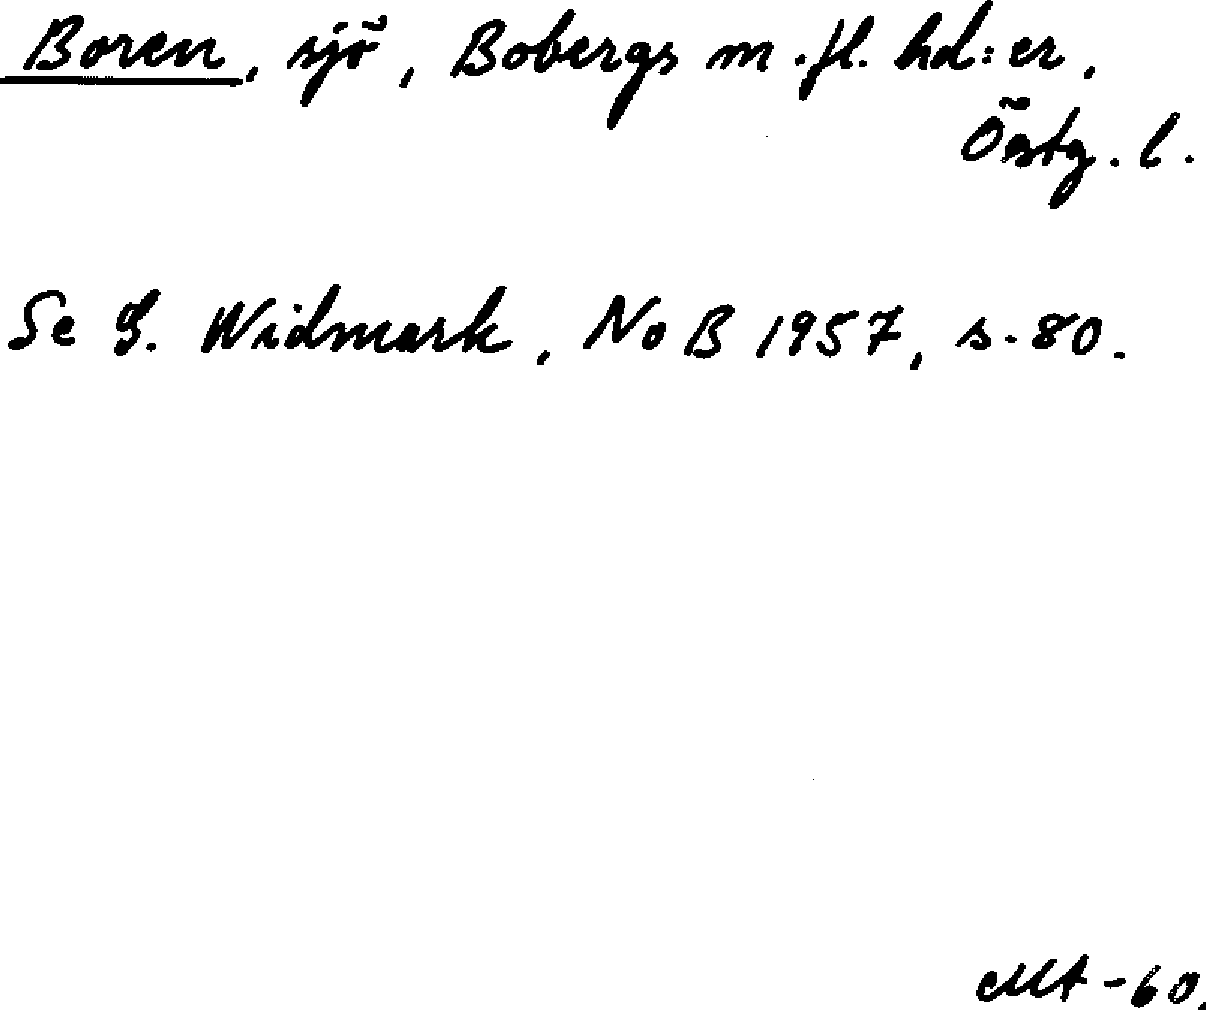 Boren, sjö, Bobergs m.fl. hd:er,
Östg. l.
Se G. Widmark, NoB 1957, s. 80.
MA -60.